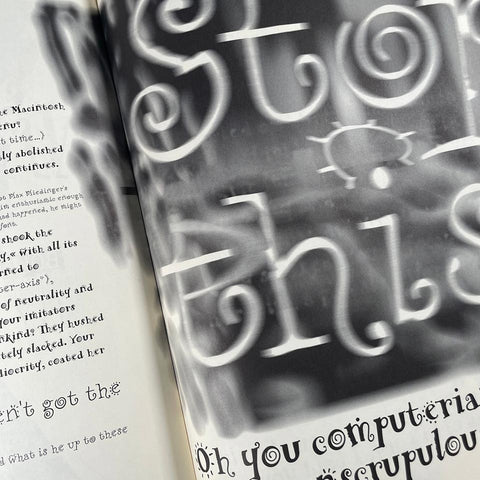 e Macintosh
enu?
t time...)
ly abolished
continues.
t Max Miedinger's
im enthusiastic enough
had happened, he might
fonts.
shook the
y,« With all its
rned to
ter-axis"),
of neutrality and
your imitators
nkind? They hushed
tely slacked. Your
diocrity, coated her
en't got the
d What is he up to these
Stor
this
Oh you computeria
nscrupulou